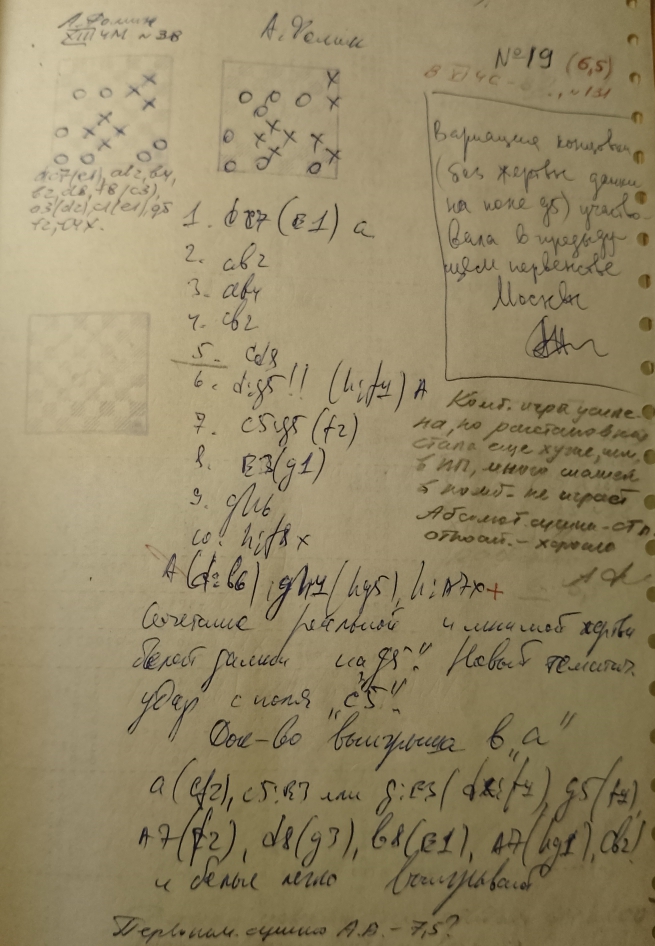 А. Фомин
XIII ЧМ № 38
А. Фомин
№ 19 (6,5)
d:c7(c1), ab2, b4,
Вариация концовки
(без жертвы дамки
на поле g5) участво-
вала в предыду-
щем первенстве
Москвы
1. d:c7 (e1) a
2. ab2
3. ab4
4. cb2
5. cd8
6. d:g5!! (h:f4) A
7. c5:g5 (f2)
8. e3 (g1)
9. gh6
10. h:f8 x
Комб. игра усиле-
на, но расстановка
стала еще хуже, чем
в ПП, много шашек
в комб. не играет
Абсолют. оценка - отл.
относит. - хорошо
A (d:b6), gh4 (hg5), h:a7x+
Сочетание реальной и мнимой жертвы
белой дамки на "g5". Новый тематич.
удар с поля "c5".
Док-во выигрыша в "a"
a (ef2), c5:e3 или g:e3 (d:f4), g5 (f4)
a7 (f2), d8 (g3), b8 (e1), a7 (hg1), cb2!
и белые легко выигрывают
Первонач. оценка А.А. - 7,5?